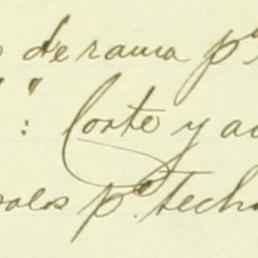 de rama pª
" : Corte y a
palos pª tech